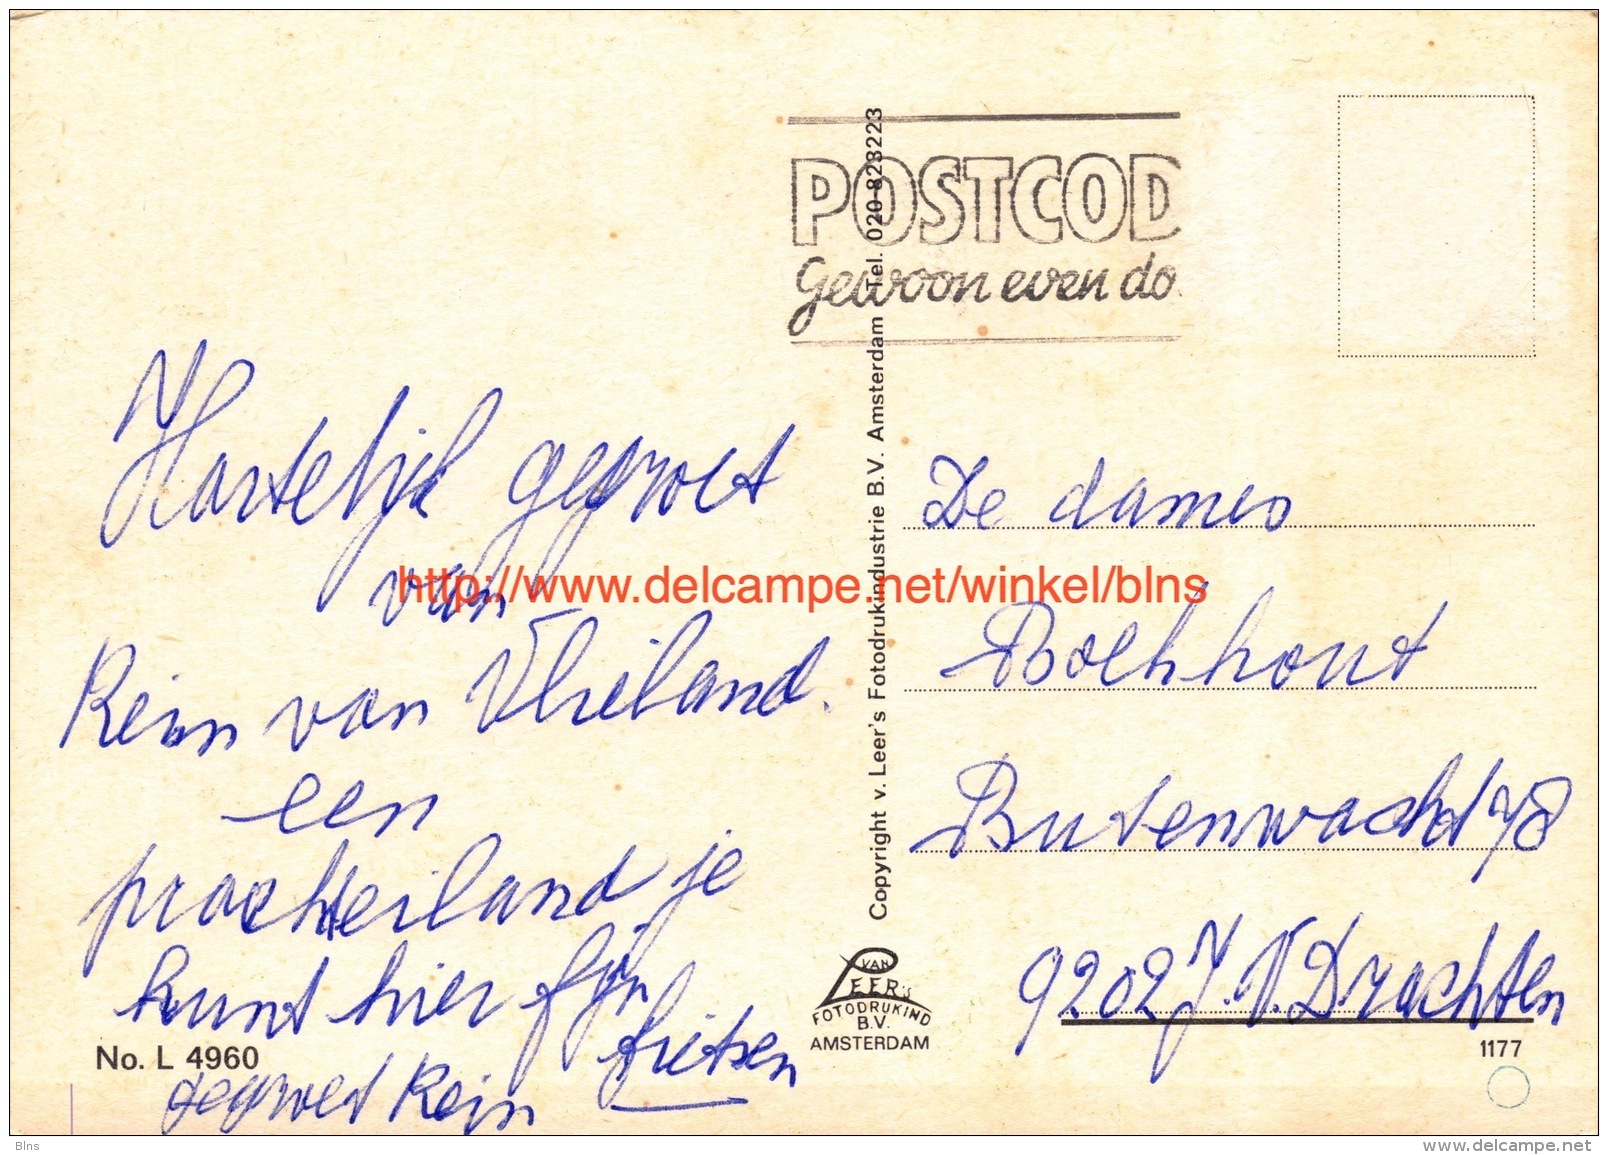 POSTCOD
Gewoon even do
Hartelijk gegroet
van
Rein van Vlieland.
een
prachteiland je
kunt hier fijn
fietsen
gegroet Rein
No. L 4960
Copyright v. Leer's Fotodrukindustrie B.V. Amsterdam Tel. 020-823223
VAN
LEER'S
FOTODRUKIND
B.V.
AMSTERDAM
De dames
Boekhout
Butenwacht 48
9202 J.V. Drachten
1177
http://www.delcampe.net/winkel/blns
Blns
www.delcampe.net